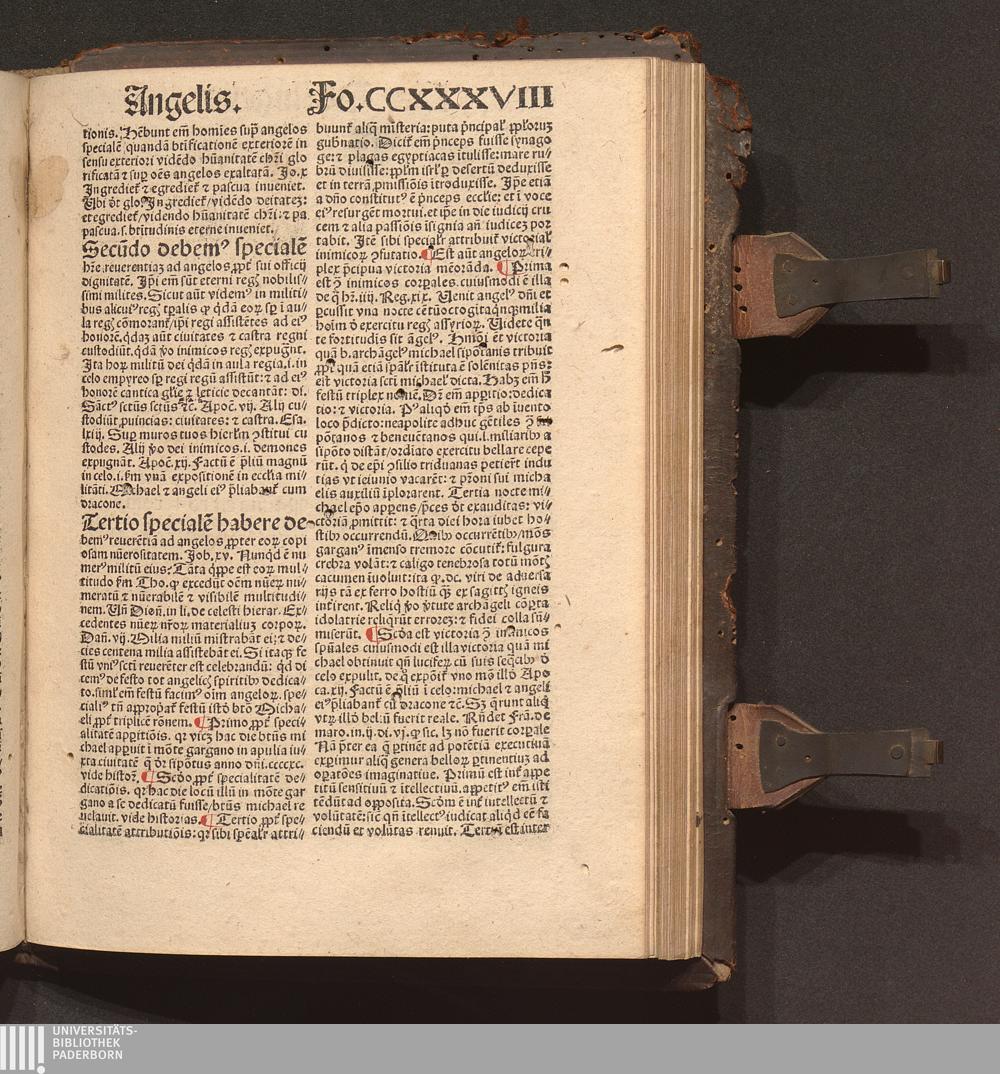 Angelis. Fo.CCXXXVIII
tionis. Hēbunt em̄ homīes sup̄ angelos
specialē quandā btificationē exteriorē in
sensu exteriori vidēdo hūanitatē chr̄i glo
rificatā ⁊ sup̄ oēs angelos exaltatā. Jo.x
Ingrediet̄ ⁊ egrediet̄ ⁊ pascua inueniet.
Ubi dt̄ glo. Ingrediet̄/vidēdo deitatez:
et egrediet̄/videndo hūanitatē chr̄i: ⁊ pa
pascua.s.btītudinis eterne inueniet.
Secūdo debemꝰ specialē
hr̄e reuerentiaz ad angelos ꝓpt̄ sui officij
dignitatē. Ip̄i em̄ sūt eterni regꝭ nobilis/
simi milites. Sicut aūt videmꝰ in militi/
bus alicuiꝰ regꝭ tp̄alis ꝙ qdā eoꝝ sp̄ ī au/
la regꝭ cōmorant̄/ip̄i regi assistētes ad eiꝰ
honorē. qdaz aūt ciuitates ⁊ castra regni
custodiūt. qdā ꝟo inimicos regꝭ expugnt̄.
Ita hoꝝ militū dei qdā in aula regia.i. in
celo empyreo sp̄ regi regū assistūt: ⁊ ad eiꝰ
honorē cantica glīe ⁊ leticie decantāt: di.
Sāctꝰ sctūs sctūs ⁊c̄. Apoc̄. vij. Alij cu/
stodiūt ꝓuincias: ciuitates: ⁊ castra. Esa.
lxij. Sup̄ muros tuos hierłm ꝯstitui cu
stodes. Alij ꝟo dei inimicos.i. demones
expugnāt. Apoc̄. xij. Factū ē p̄liū magnū
in celo.i. ẜm vnā expositionē in ecclīa mi/
litāti. Michael ⁊ angeli eiꝰ p̄liabant̄ cum
dracone.
Tertio specialē habere de/
bemꝰ reuerētiā ad angelos ꝓpter eoꝝ copi
osam nūerositatem. Job. xv. Nunqd ē nu
merꝰ militū eius: Tāta q̄ppe est eoꝝ mul/
titudo ẜm Tho. ꝙ excedūt oēm nūeꝝ nu/
meratū ⁊ nūerabilē ⁊ visibilē multitudi/
nem. Un̄ Dion̄. in li. de celesti hierar. Ex/
cedentes nūeꝝ nr̄oꝝ materialiuz corpoꝝ.
Dan̄. vij. Milia miliū mīstrabāt ei: ⁊ de/
cies centena milia assistebāt ei. Si itaqꝫ fe
stū vnꝰ scti reuerēter est celebrandū: qd di
cemꝰ de festo tot angelicꝭ spiritibꝰ dedica/
to. simł em̄ festū facimꝰ oīm angeloꝝ. spe/
cialiꝰ tn̄ appropat̄ festū istō btō Micha/
eli ꝓpt̄ triplicē rōnem. ¶ Primo ꝓpt̄ speci/
alitatē apparitiōis. qꝛ vicz hac die btūs mi
chael apꝑuit ī mōte gargano in apulia iu/
xta ciuitatē q̄ dr̄ sipōtus anno dn̄i. ccccxc.
vide histor̄. ¶ Scdo ꝓpt̄ specialitatē de/
dicatiōis. qꝛ hac die locū illū in mōte gar
gano a se dedicatū fuisse/btūs michael re
uelauit. vide historias. ¶ Tertio ꝓpt̄ spe/
cialitatē attributiōis: qꝛ sibi spēalr̄ attri/
buunt̄ aliq̄ misteria: puta p̄ncipal̄ ppłoruz
gub̄natio. Dicit̄ em̄ p̄nceps fuisse synago
ge: ⁊ plagas egyptiacas ītulisse: mare ru/
brū diuisisse: ppłm isrł ꝑ desertū deduxisse
et in terrā ꝓmissiōis ītroduxisse. Ip̄e etiā
a dn̄o constitutꝰ ē p̄nceps ecclīe: et ī voce
eiꝰ resurgēt mortui. et ip̄e in die iudicij cru
cem ⁊ alia passiōis īsignia an̄ iudicez por
tabit. Itē sibi specialr̄ attribuit̄ victorial̄
inimicoꝝ ꝯfutatio. ¶ Est aūt angeloꝝ tri/
plex p̄cipua victoria meorāda. ¶ Prima
est ꝯ inimicos corꝑales. cuiusmodi ē illa
de q̄ hr̄. iiij. Reg. xix. Uenit angelꝰ dn̄i et
ꝑcussit vna nocte cētūoctogitaqnqꝫ milia
hoīm d̄ exercitu regꝭ assyrioꝝ. Uidete qn̄
te fortitudis sit āgelꝰ. Hmōi ēt victoria
quā b. archāgelꝰ michael siponṫanis tribuit
ꝓpt̄ quā etiā spalr̄ īstituta ē solēnitas pn̄s:
est victoria scti michael dicta. Habꝫ em̄ h̄
festū triplex nomē. Dr̄ em̄ apparitio: dedica
tio: ⁊ victoria. Pꝰ aliqd em̄ tp̄s ab īuento
loco p̄dicto: neapolite adhuc gētiles ꝯ sip
pōtanos ⁊ beneuētanos qui.l. miliaribꝰ a
sipōto distāt/ordīato exercitu bellare cepe
rūt. q̇ de ep̄i ꝯsilio triduanas petier̄t indu
tias vt ieiunio vacarēt: ⁊ p̄roni sui micha
elis auxiliū īplorarent. Tertia nocte mi/
chael ep̄o apꝑens/p̄ces dt̄ exauditas: vi/
ctoriā ꝓmittit: ⁊ q̄rta diei hora iubet ho/
stibꝰ occurrendū. Quibꝰ occurrētibꝰ/mōs
garganꝰ īmenso tremore cōcutit̄: fulgura
crebra volāt: ⁊ caligo tenebrosa totū mōtꝭ
cacumen īuoluit: ita ꝙ. dc. viri de aduersa
rijs tā ex ferro hostiū qꝫ ex sagittꝭ igneis
inʼtirent. Reliq̇ ꝟo ꝟtute archāgeli cōꝑta
idolatrie reliq̄rūt errorez: ⁊ fidei colla sū/
miserūt. ¶ Scda est victoria ꝯ inimicos
spūales cuiusmodi est illa victoria quā mi
chael obtinuit qn̄ luciferꝝ cū suis seqcibꝰ d̄
celo expulit. de q̄ expōit̄ vno mō illđ Apo
ca. xij. Factū ē p̄liū ī celo: michael ⁊ angeli
eiꝰ p̄liabant̄ cū dracone ⁊c̄. Sꝫ q̄runt aliq̇
vtꝝ illđ bellū fuerit reale. Rn̄det Frā. de
maro. in. ij. di. vj. ꝙ sic. lꝫ nō fuerit corꝑale
Nā p̄ter ea q̄ ꝑtinēt ad potētiā executiuā
exprimunt̄ aliq̄ genera belloꝝ ꝑtinentiuz ad
oꝑatōes imaginatiue. Primū est int̄ appe
titū sensitiuū ⁊ ītellectiuū. appetitꝰ em̄ isti
tēdūt ad opposita. Scdm ē int̄ intellectū ⁊
volūtatē: sic qn̄ ītellectꝰ iudicat aliqd eē fa
ciendū et volūtas renuit. Tertiū est inter
UNIVERSITÄTS-
BIBLIOTHEK
PADERBORN